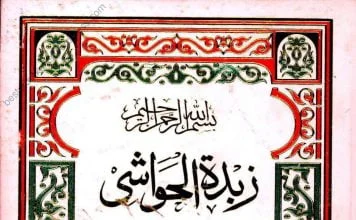 بسم الله الرحمن الرحيم
زبدة الحواشی